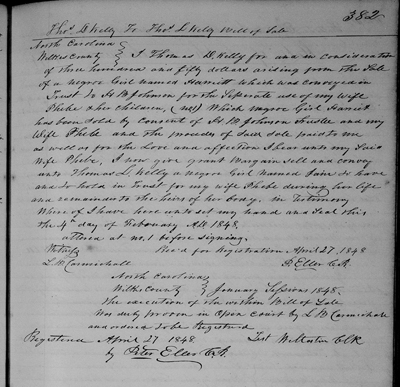 382
Thos. D. Kelly To Thos. L. Kelly Bill of Sale
North Carolina
Wilkes County } I Thomas D. Kelly for and in consideration
of three hundred and fifty dollars arising from the Sale
of a negroe Girl named Harriett which was conveyed in
Trust to H. B. Johnson for the Seperate use of my wife
Phebe & her children, Which negroe Girl Harriet
has been Sold by Consent of H. B. Johnson Trustee and my
Wife Phebe and the proceeds of Said Sale paid to me
as well as for the Love and affection I bear unto my Said
Wife Phebe, I now give grant bargain sell and convey
unto Thomas L. Kelly a negroe Girl named Jane to have
and to hold in Trust for my wife Phebe during her life
and remainder to the heirs of her body. In Testimony
Where of I have here unto set my hand and Seal this
the 4th day of February AD 1848
altered at no. 1 before signing.
Witness Rec'd for Registration April 27, 1848
L. B. Carmichall P. Eller C.R.
North Carolina
Wilkes County } January Sessions 1848.
The execution of the within Bill of Sale
Was duly proven in Open court by L. B. Carmichall
and ordered to be Registered
Registered April 27 1848 Test W. Mastin Clk
by Peter Eller C.R.